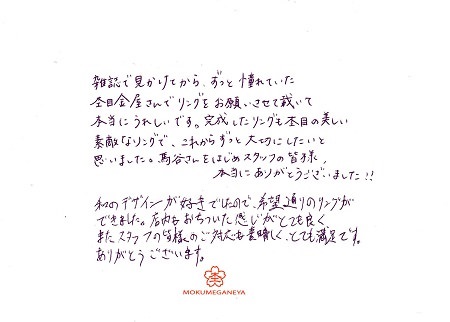 雑誌で見かけてから、ずっと憧れていた
杢目金屋さんでリングをお願いさせて戴いて
本当にうれしいです。完成したリングも木目の美しい
素敵なリングで、これからずっと大切にしたいと
思いました。馬谷さんをはじめスタッフの皆様、
本当にありがとうございました!!
和のデザインが好きでしたので、希望通りのリングが
できました。店内もおちついた感じがとても良く
またスタッフの皆様のご対応も素晴しく、とても満足です。
ありがとうございます。
MOKUMEGANEYA